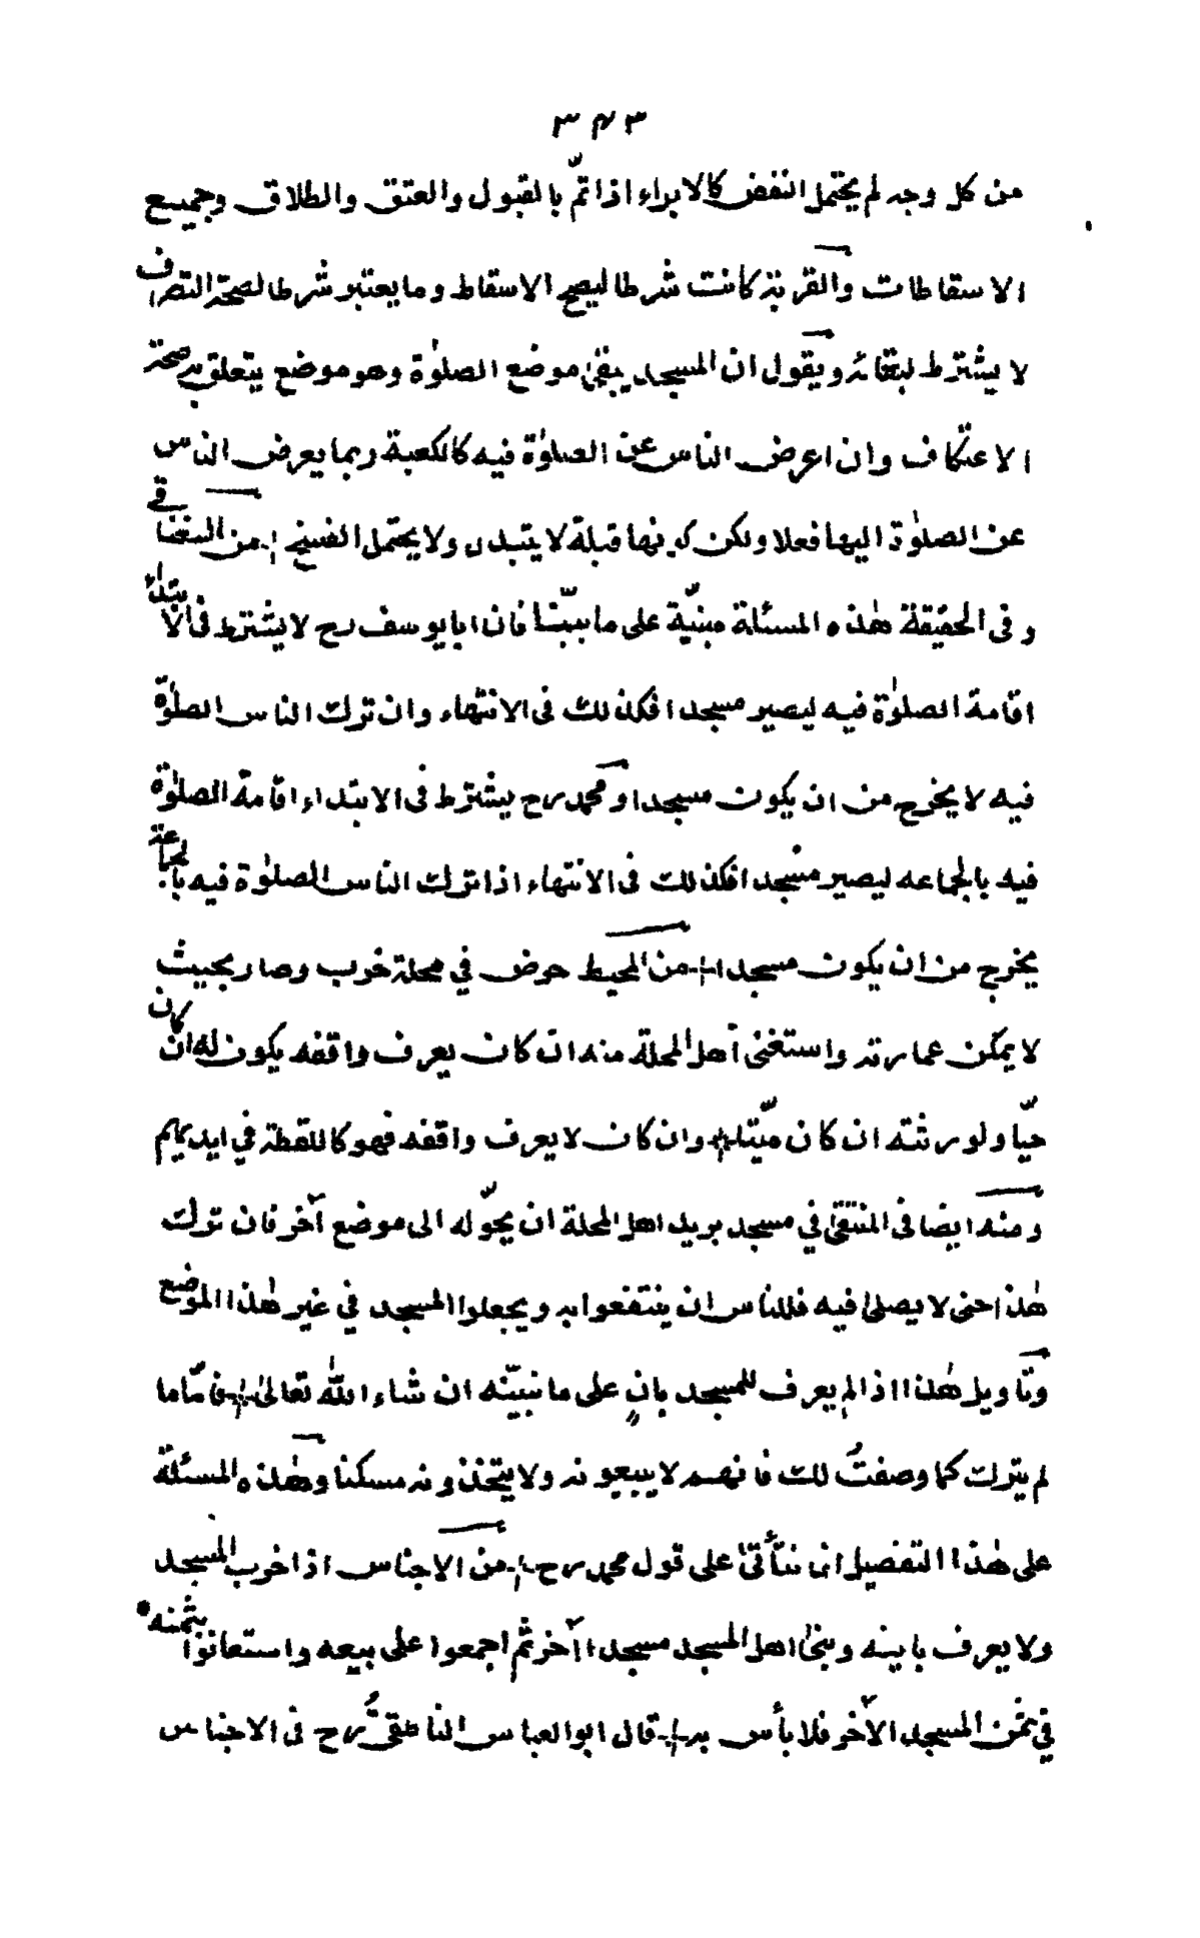 ٣٤٣
من كل وجه لم يحتمل النقض كالابراء اذا تمّ بالقبول والعتق والطلاق وجميع
الاسقاطات والقربة كانت شرطا ليصح الاسقاط وما يعتبر شرطا لصحة التصرف
لا يشترط لبقائه ويقول ان المسجد يبقىٰ موضع الصلوٰة وهو موضع يتعلق به صحة
الاعتكاف وان اعرض الناس عن الصلوٰة فيه كالكعبة ربما يعرض الناس
عن الصلوٰة اليها فعلا ولكن كونها قبلة لا يتبدل ولا يحتمل الفسخ من السغناقي
وفى الحقيقة هٰذه المسئلة مبنيّة على ما بيّنا فان ابا يوسف رح لا يشترط فى الابتداء
اقامة الصلوٰة فيه ليصير مسجدا فكذلك فى الانتهاء وان ترك الناس الصلوٰة
فيه لا يخرج من ان يكون مسجدا ومحمد رح يشترط فى الابتداء اقامة الصلوٰة
فيه بالجماعه ليصير مسجدا فكذلك فى الانتهاء اذا ترك الناس الصلوٰة فيه بالجماعة
يخرج من ان يكون مسجدا من المحيط حوض في محلة خرب وصار بحيث
لا يمكن عمارته واستغنى أهل المحلة منه ان كان يعرف واقفه يكون له ان كان
حيّا ولورثته ان كان ميّتا وان كان لا يعرف واقفه فهو كاللقطة في ايديهم
ومنه ايضا فى المنتقىٰ في مسجد يريد اهل المحلة ان يحوّله الى موضع آخر فان ترك
هٰذا حتى لا يصلىٰ فيه فللناس ان ينتفعوا به ويجعلوا المسجد في غير هٰذا الموضع
وتأويل هٰذا اذا لم يعرف للمسجد بانٍ على ما نبيّنه ان شاء الله تعالىٰ فامّا ما
لم يترك كما وصفتُ لك فانهم لا يبيعونه ولا يتخذونه مسكنا وهٰذه المسئلة
على هٰذا التفصيل انما تتأتىٰ على قول محمد رح من الاجناس اذا خرب المسجد
ولا يعرف بانيه وبنىٰ اهل المسجد مسجدا آخر ثم اجمعوا على بيعه واستعانوا بثمنه
في ثمن المسجد الآخر فلا بأس به قال ابو العباس الناطقىُّ رح فى الاجناس